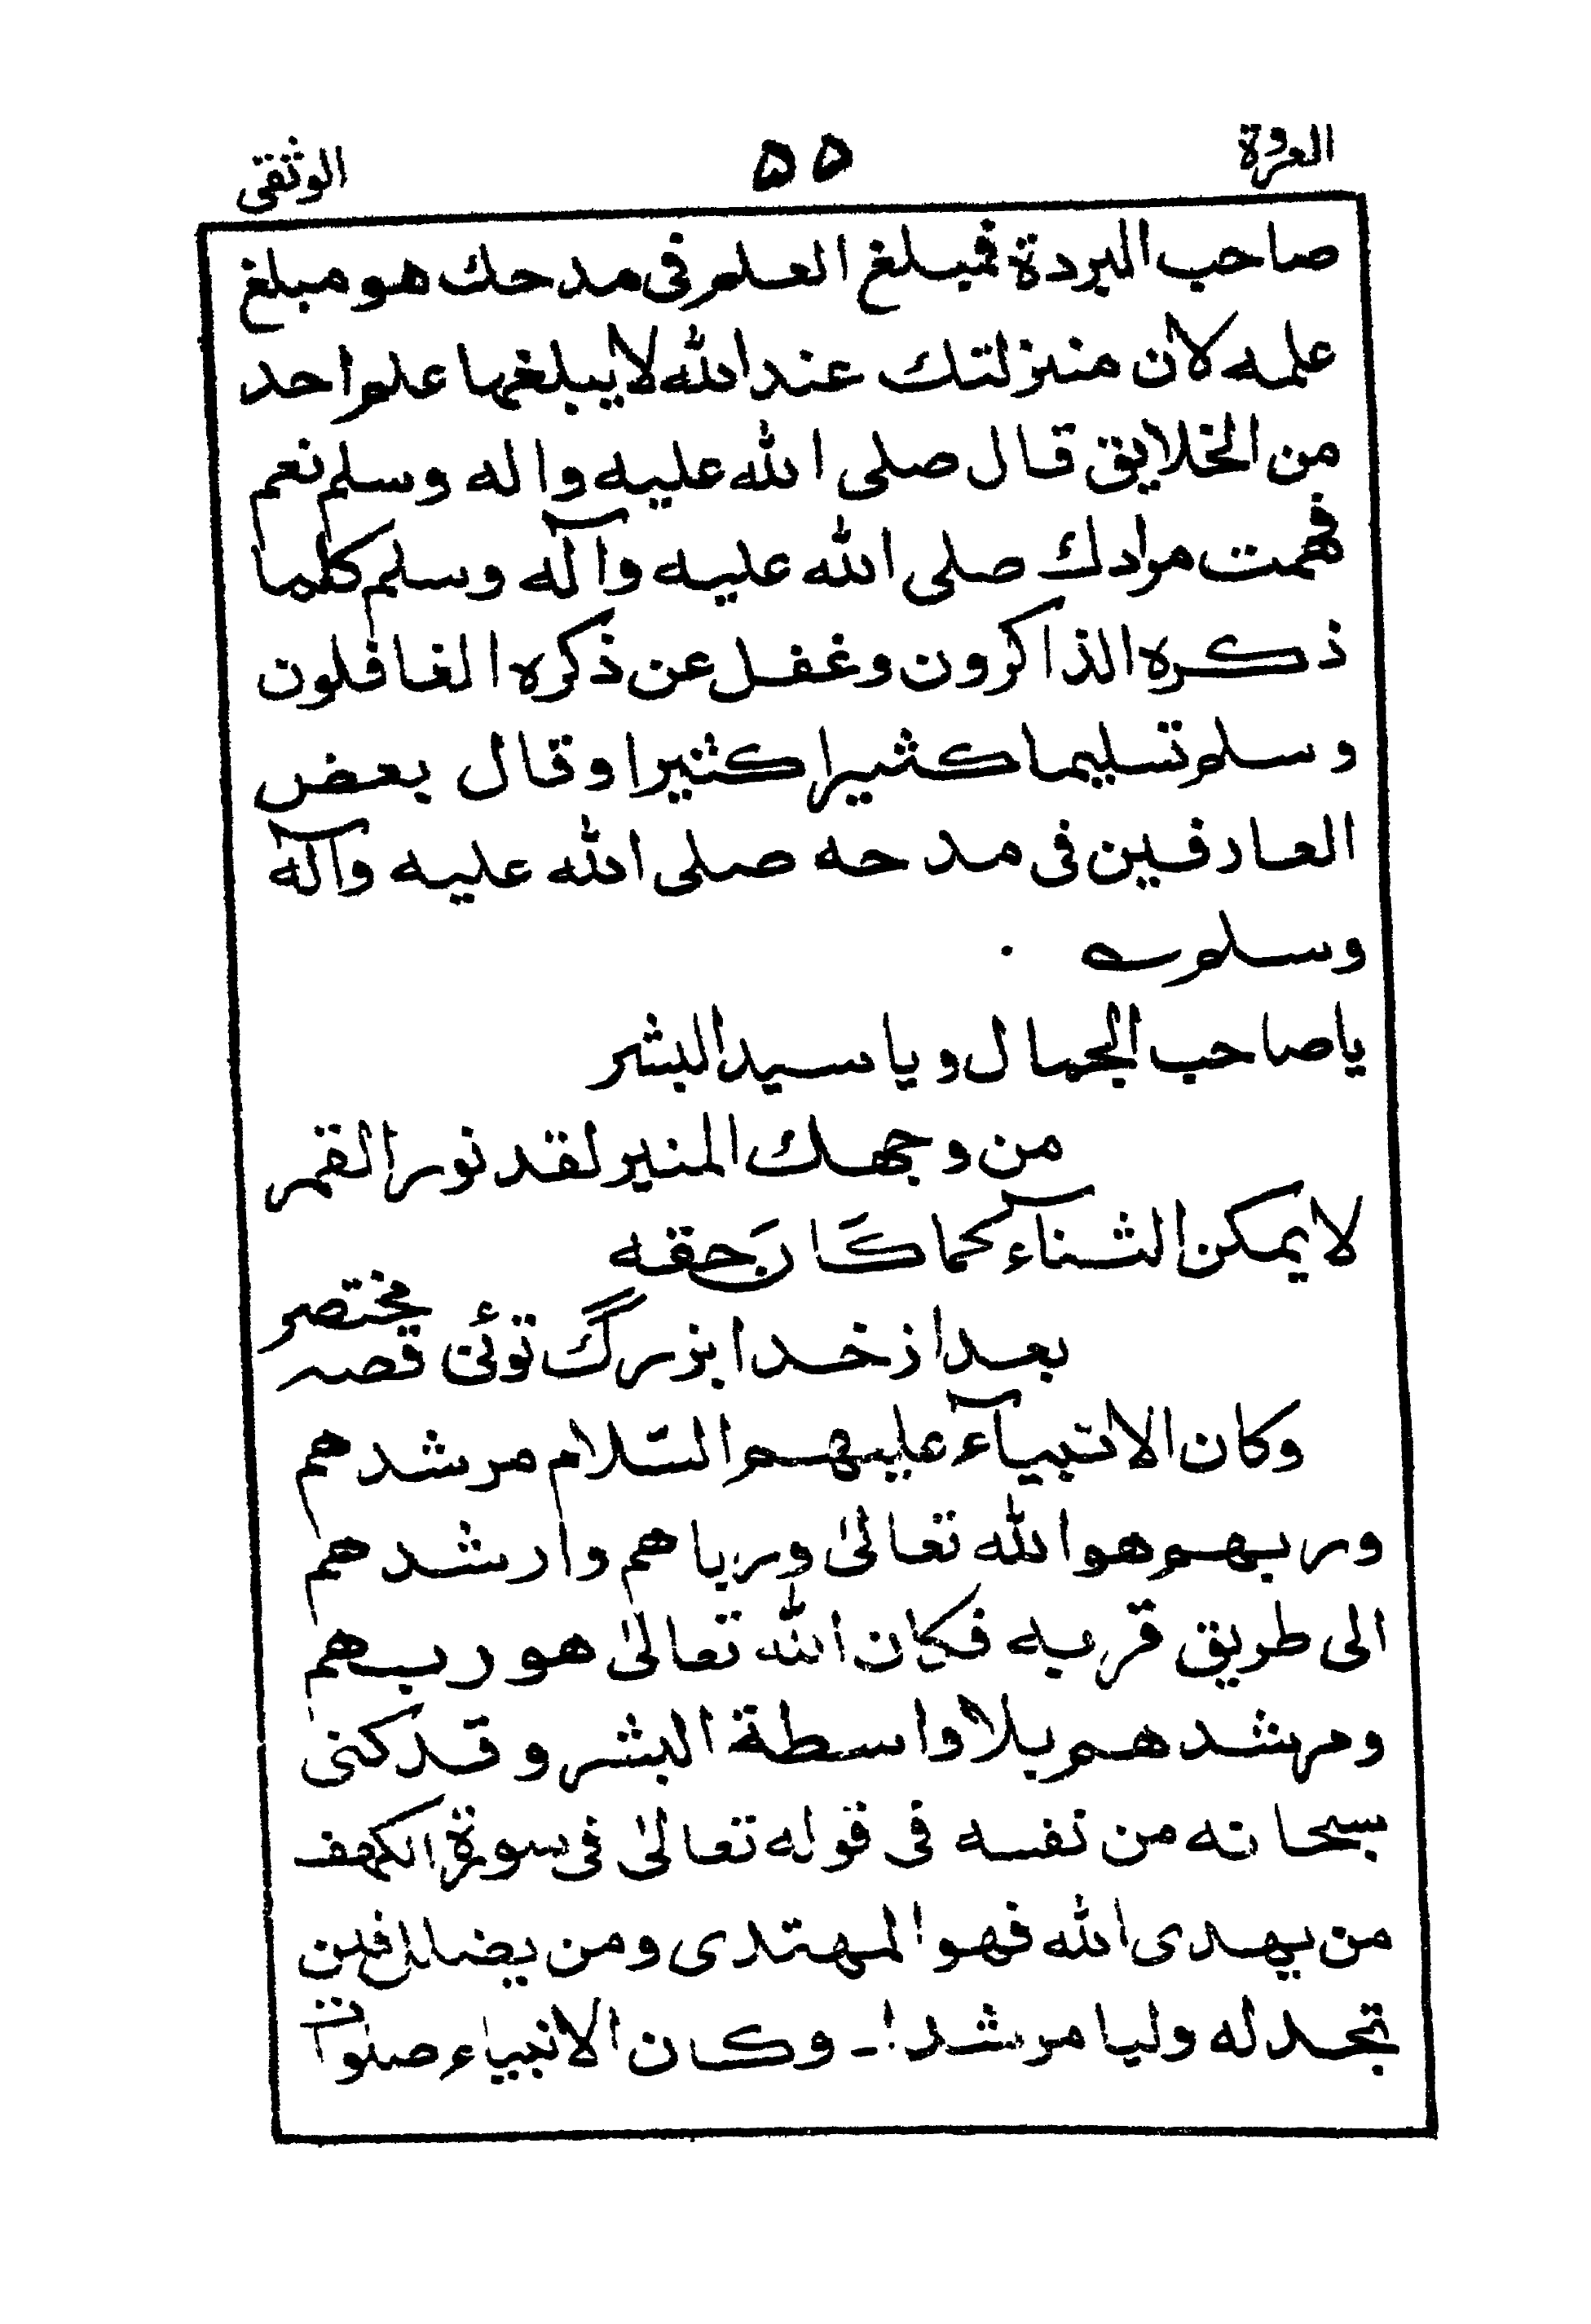 العروة ۵۵ الوثقى
صاحب البردة فمبلغ العلم فى مدحك هو مبلغ
علمه لان منزلتك عند الله لا يبلغها علم احد
من الخلايق قال صلى الله عليه واله وسلم نعم
فهمت مرادك صلى الله عليه وآله وسلم كلما
ذكره الذاكرون وغفل عن ذكره الغافلون
وسلم تسليما كثيرا كثيرا وقال بعض
العارفين فى مدحه صلى الله عليه وآله
وسلم
ياصاحب الجمال ويا سيد البشر
من وجهك المنير لقد نور القمر
لا يمكن الثنآء كما كَانَ حقه
بعد از خدا بزرگ توئی قصہ مختصر
وكان الانبيآء عليهم السّلام مرشدهم
وربهم هو الله تعالىٰ ورباهم وارشدهم
الى طريق قربه فكان الله تعالىٰ هو ربهم
ومرشدهم بلا واسطة البشر وقد كنى
سبحانه من نفسه فى قوله تعالىٰ فى سورة الكهف
من يهدى الله فهو المهتدى ومن يضلل فلن
تجد له وليا مرشدا ـ وكان الانبياء صلوات